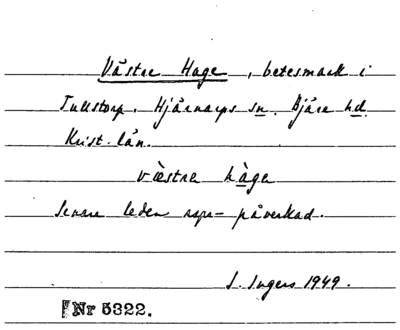 Västre Hage, betesmark i
Tullstorp. Hjärnarps sn. Bjäre hd.
Krist. län.
væ̀stra hàga
Senare leden rspr-påverkad.
I. Ingers 1949.
Nr 5322.